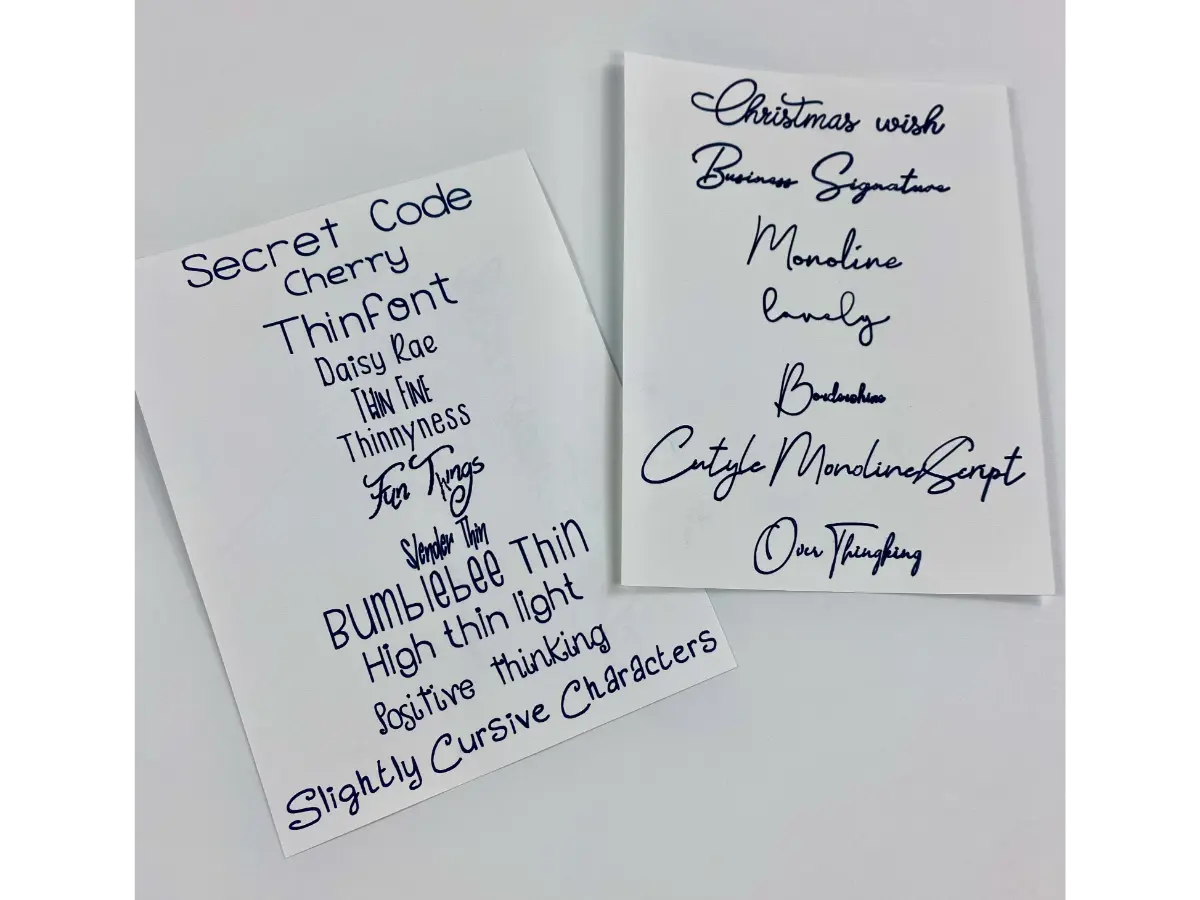 Secret Code
Cherry
Thinfont
Daisy Rae
THIN FINE
Thinnyness
Fun Things
Slender Thin
Bumblebee Thin
High thin light
Positive thinking
Slightly Cursive Characters
Christmas wish
Business Signature
Monoline
lovely
Cutyle Monoline Script
Over Thingking